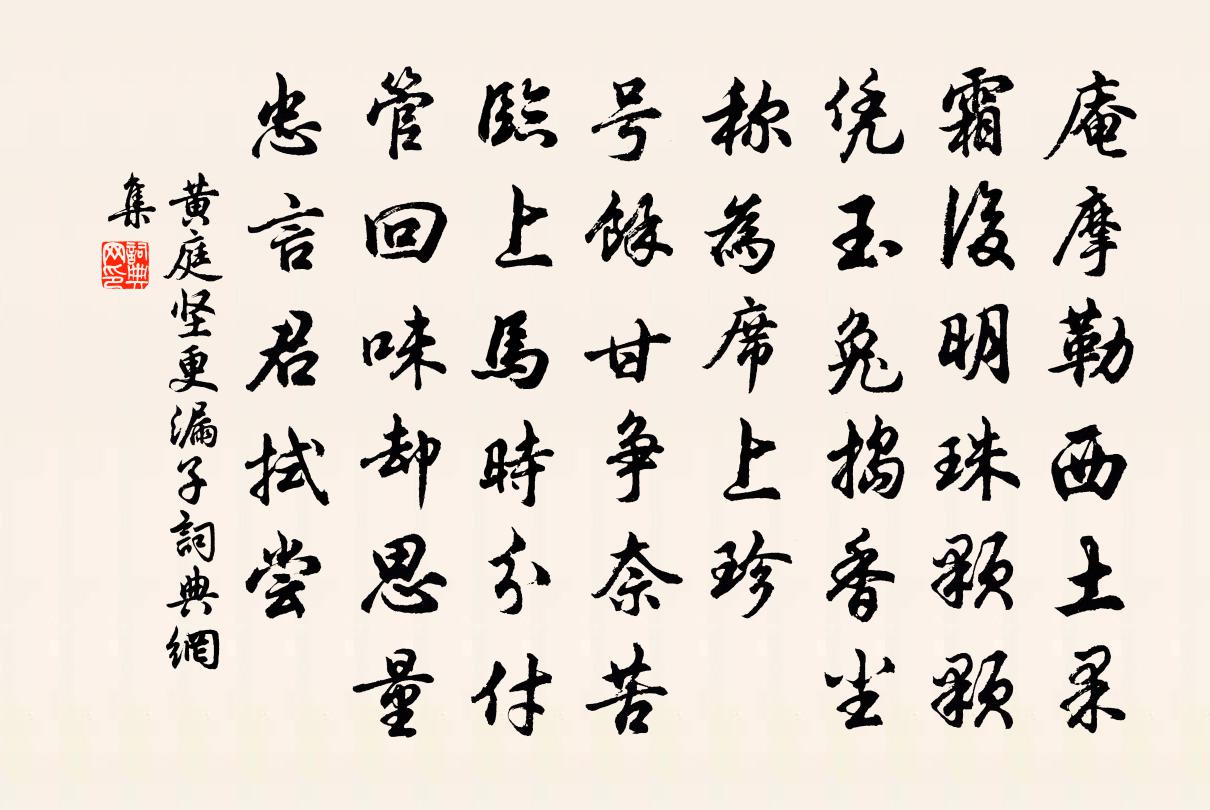 庵摩勒西土果
霜後明珠顆顆
凭玉兔搗香尘
称為席上珍
号餘甘争奈苦
臨上馬時分付
管回味却思量
忠言君拭尝
黄庭坚更漏子詞典網
集
詞典
网印